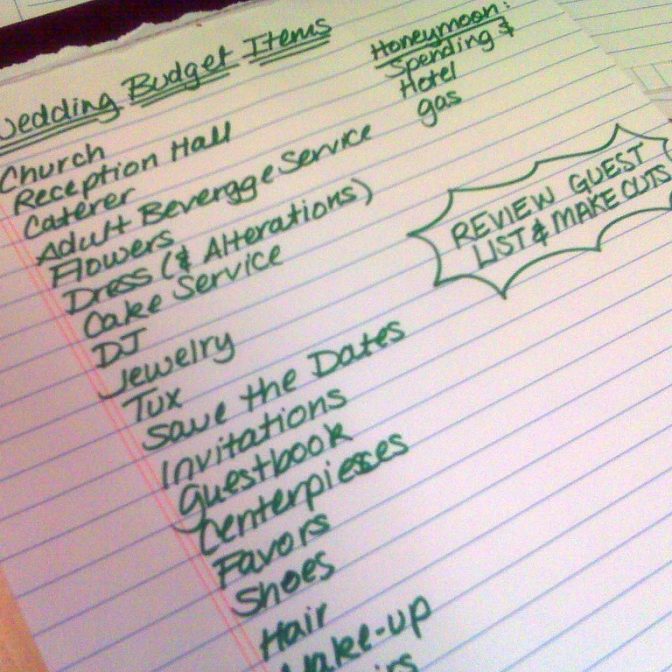 Wedding Budget Items
Church
Reception Hall
Caterer
Adult Bevergge Service
Flowers
Dress (& Alterations)
Cake Service
DJ
Jewelry
Tux
Save the Dates
Invitations
Guestbook
Centerpieses
Favors
Shoes
Hair
Make-up
Honeymoon:
Spending &
Hotel
gas
REVIEW GUEST
LIST & MAKE CUTS